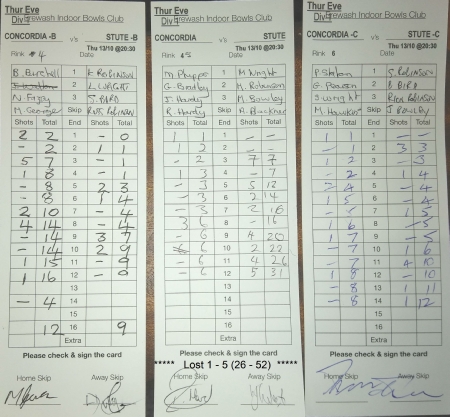 Thur Eve
Div 1 Erewash Indoor Bowls Club
CONCORDIA -B v's STUTE -B
Thu 13/10 @20:30
Rink #4 Date
1
2 L WRIGHT
N. 3 S.
M. George Skip
Shots Total End Shots Total
2 2 1 - 0
- 2 2 1 1
5 7 3 - 1
1 8 4 - 1
- 8 5 2 3
- 8 6 1 4
2 10 7 - 4
4 14 8 - 4
- 14 9 3 7
- 14 10 2 9
1 15 11 - 9
1 16 12 - 9
13
- 4 14
15
12 16 9
Extra
Please check & sign the card
Home Skip Away Skip
Thur Eve
Div 1 Erewash Indoor Bowls Club
CONCORDIA v's STUTE
Thu 13/10 @20:30
Rink Date
M. Phipps 1 M. Wright
G. Bradley 2 M. Robinson
J. Hardy 3 M. Bowley
R. Hardy Skip R. Buckner
Shots Total End Shots Total
1 1 1 - -
1 2 2 - -
- 2 3 7 7
1 3 4 - 7
- 3 5 5 12
- 3 6 2 14
- 3 7 2 16
3 6 8 - 16
- 6 9 4 20
- 6 10 2 22
- 6 11 4 26
- 6 12 5 31
13
14
15
16
Extra
Please check & sign the card
***** Lost 1 - 5 (26 - 52) *****
Home Skip Away Skip
Thur Eve
Div 1 Erewash Indoor Bowls Club
CONCORDIA -C v's STUTE -C
Thu 13/10 @20:30
Rink 6 Date
1 S. Robinson
G. Pearson 2 B BIRD
S. Wright 3
M. Hawkes Skip J
Shots Total End Shots Total
1 1 1 - -
- 1 2 3 3
1 2 3 - 3
- 2 4 1 4
2 4 5 - 4
1 5 6 - 4
- 5 7 1 5
1 6 8 - 5
1 7 9 - 5
- 7 10 1 6
- 7 11 4 10
1 8 12 - 10
- 8 13 1 11
- 8 14 1 12
15
16
Extra
Please check & sign the card
Home Skip Away Skip